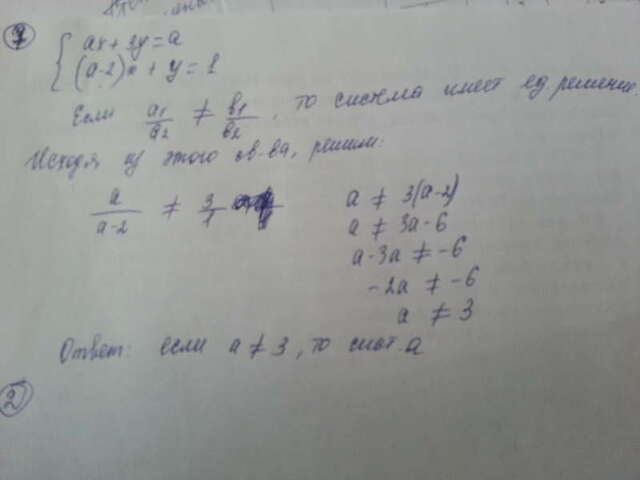 1
ax + 3y = a
(a-2)x + y = 1
Если a1/a2 ≠ b1/b2, то система имеет ед. решение.
Исходя из этого св-ва, решим:
a/a-2 ≠ 3/1
a ≠ 3(a-2)
a ≠ 3a-6
a-3a ≠ -6
-2a ≠ -6
a ≠ 3
Ответ: если a ≠ 3, то сист. а
2